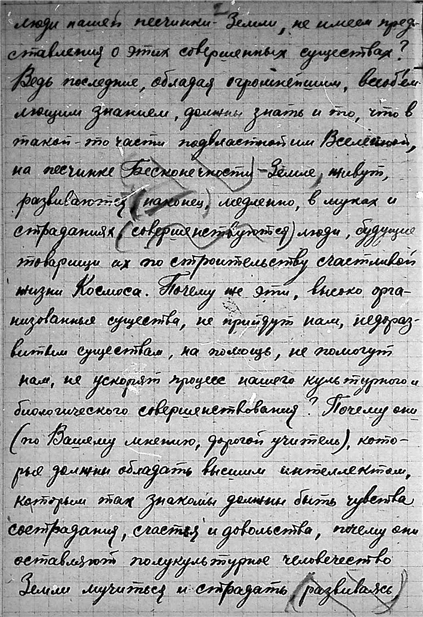 люди нашей песчинки-Земли, не имеем пред-
ставления о этих совершенных существах?
Ведь последние, обладая огромнейшим, всеобъем-
лющим знанием, должны знать и то, что в
такой-то части подвластной им Вселенной,
на песчинке Бесконечности-Земле, живут,
развиваются (наконец) медленно, в муках и
страданиях (совершенствуются) люди, будущие
товарищи их по строительству счастливой
жизни Космоса. Почему же эти, высоко орга-
низованные существа, не прийдут нам, недораз-
витым существам, на помощь, не помогут
нам, не ускорят процесс нашего культурного и
биологического совершенствования? Почему они
(по Вашему мнению, дорогой учитель), кото-
рые должны обладать высшим интеллектом,
которым так знакомы должны быть чувства
сострадания, счастья и довольства, почему они
оставляют полукультурное человечество
Земли мучиться и страдать (развиваясь)